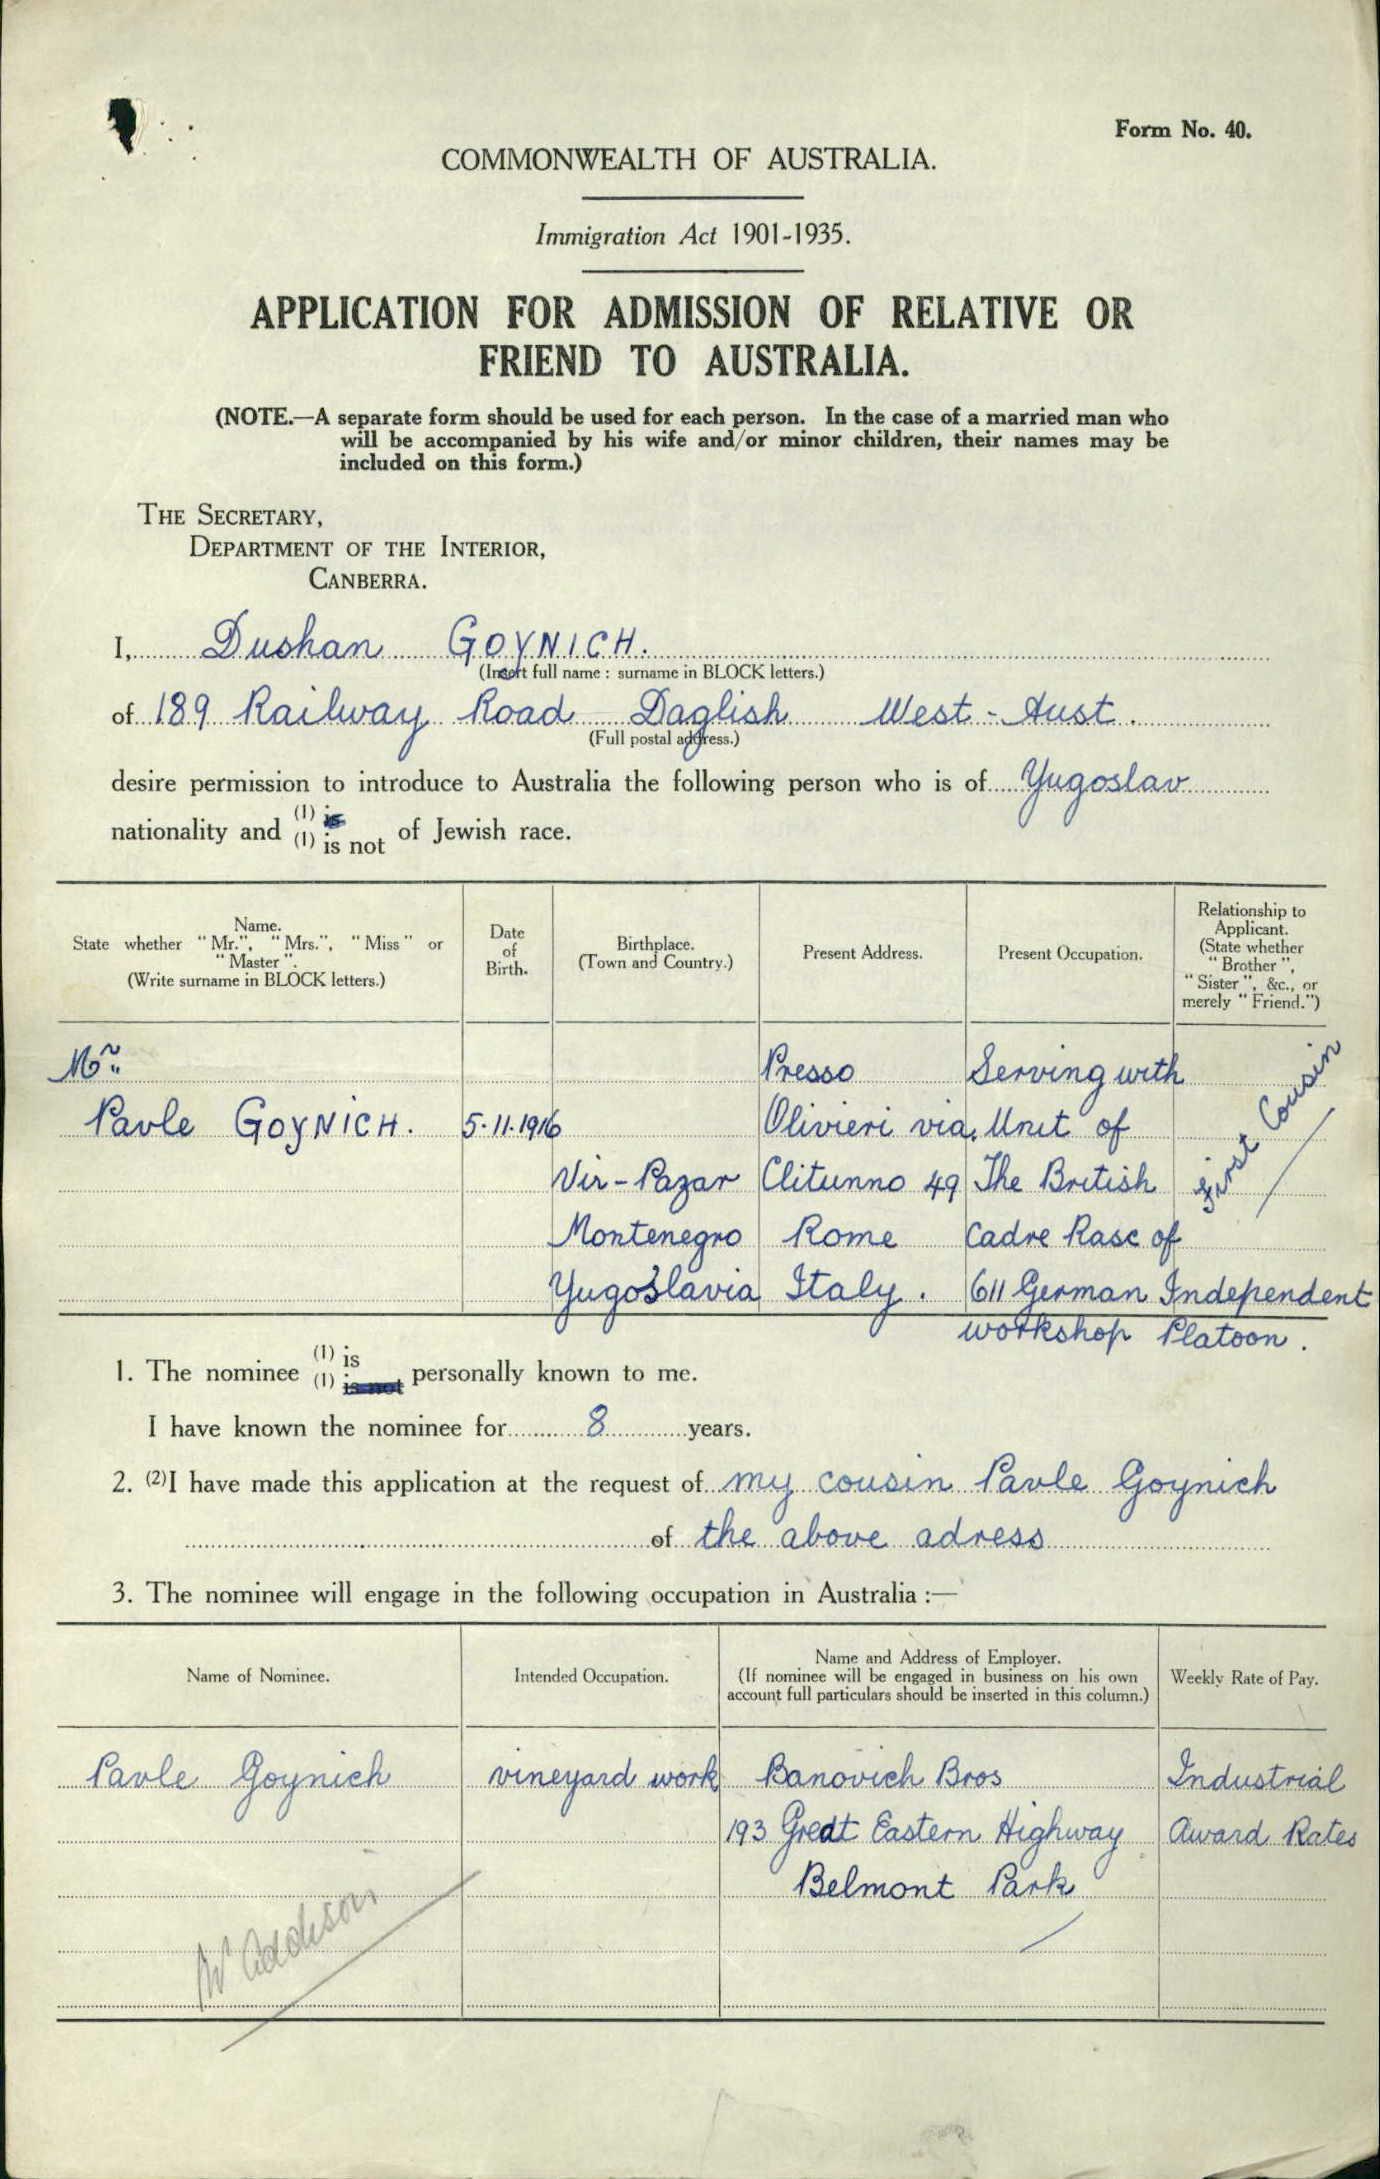 Form No. 40.
COMMONWEALTH OF AUSTRALIA.
Immigration Act 1901-1935.
APPLICATION FOR ADMISSION OF RELATIVE OR
FRIEND TO AUSTRALIA.
(NOTE.—A separate form should be used for each person. In the case of a married man who
will be accompanied by his wife and/or minor children, their names may be
included on this form.)
THE SECRETARY,
DEPARTMENT OF THE INTERIOR,
CANBERRA.
I, Dushan GOYNICH.
(Insert full name : surname in BLOCK letters.)
of 189 Railway Road Daglish West - Aust.
(Full postal address.)
desire permission to introduce to Australia the following person who is of Yugoslav
nationality and (1) is
(1) is not of Jewish race.
Name.
State whether "Mr.", "Mrs.", "Miss" or
"Master".
(Write surname in BLOCK letters.)
Date
of
Birth.
Birthplace.
(Town and Country.)
Present Address.
Present Occupation.
Relationship to
Applicant.
(State whether
"Brother",
"Sister", &c., or
merely "Friend.")
Mr
Pavle GOYNICH.
5.11.1916
Vir-Pazar
Montenegro
Yugoslavia
Presso
Olivieri via.
Clitunno 49
Rome
Italy.
Serving with
Unit of
The British
Cadre Rasc of
611 German Independent
workshop Platoon.
First Cousin
1. The nominee (1) is
(1) is not personally known to me.
I have known the nominee for 8 years.
2. (2)I have made this application at the request of my cousin Pavle Goynich
of the above adress
3. The nominee will engage in the following occupation in Australia :—
Name of Nominee.
Intended Occupation.
Name and Address of Employer.
(If nominee will be engaged in business on his own
account full particulars should be inserted in this column.)
Weekly Rate of Pay.
Pavle Goynich
vineyard work
Banovich Bros
193 Great Eastern Highway
Belmont Park
Industrial
Award Rates
W Addison